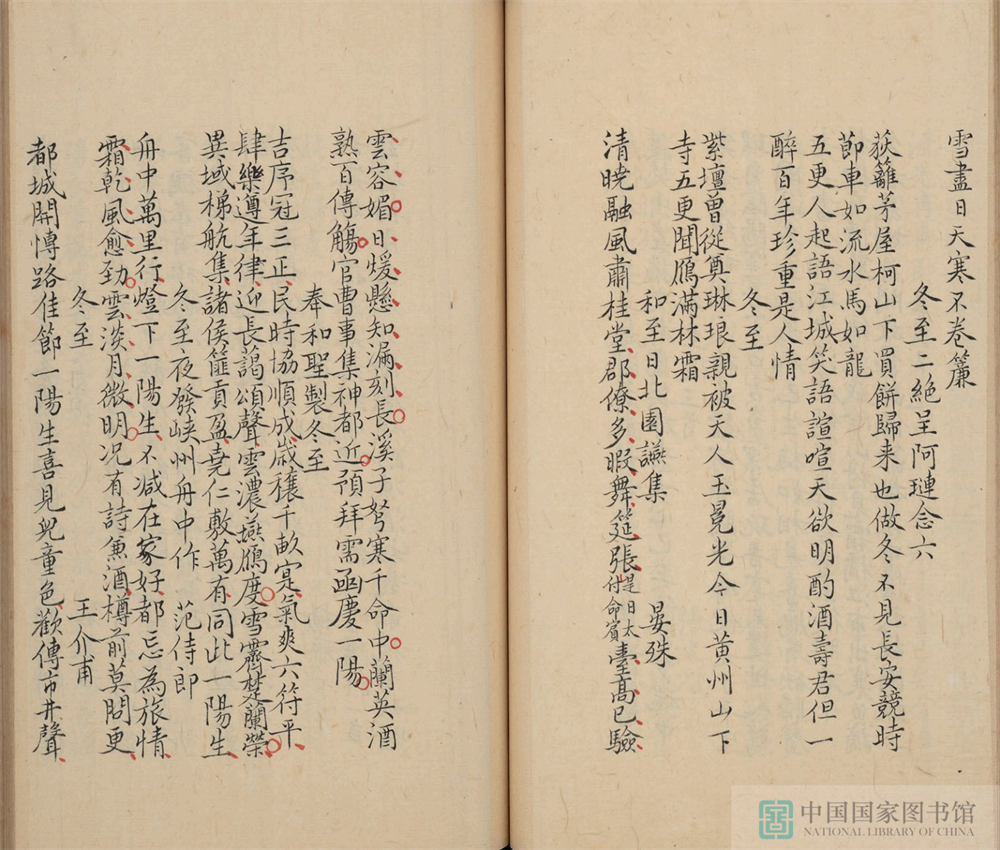 雪盡日天寒不卷簾
冬至二絕呈阿璉念六
荻籬茅屋柯山下買餅歸来也做冬不見長安競時
節車如流水馬如龍
五更人起語江城笑語諠喧天欲明酌酒壽君但一
醉百年珍重是人情
冬至
紫壇曾從奠琳琅親被天人玉冕光今日黄州山下
寺五更聞鴈滿林霜
和至日北園讌集 晏殊
清曉融風肅桂堂郡僚多暇舞筵張是日太付命賞臺高已驗
雲容媚日煖懸知漏刻長溪子弩寒千命中蘭英酒
熟百傳觴官曹事集神都近預拜需函慶一陽
奉和聖製冬至
吉序冠三正民時協順成歳穰千畝寔氣爽六符平
肆樂遵年律迎長藹頌聲雲濃燕鴈度雪霽楚蘭榮
異域梯航集諸侯篚貢盈堯仁敷萬有同此一陽生
冬至夜發峽州舟中作 范侍郎
舟中萬里行燈下一陽生不减在家好都忘為旅情
霜乾風愈勁雲淡月微明况有詩兼酒樽前莫問更
冬至 王介甫
都城開博路佳節一陽生喜見兒童色歡傳市井聲
中国国家图书馆
NATIONAL LIBRARY OF CHINA